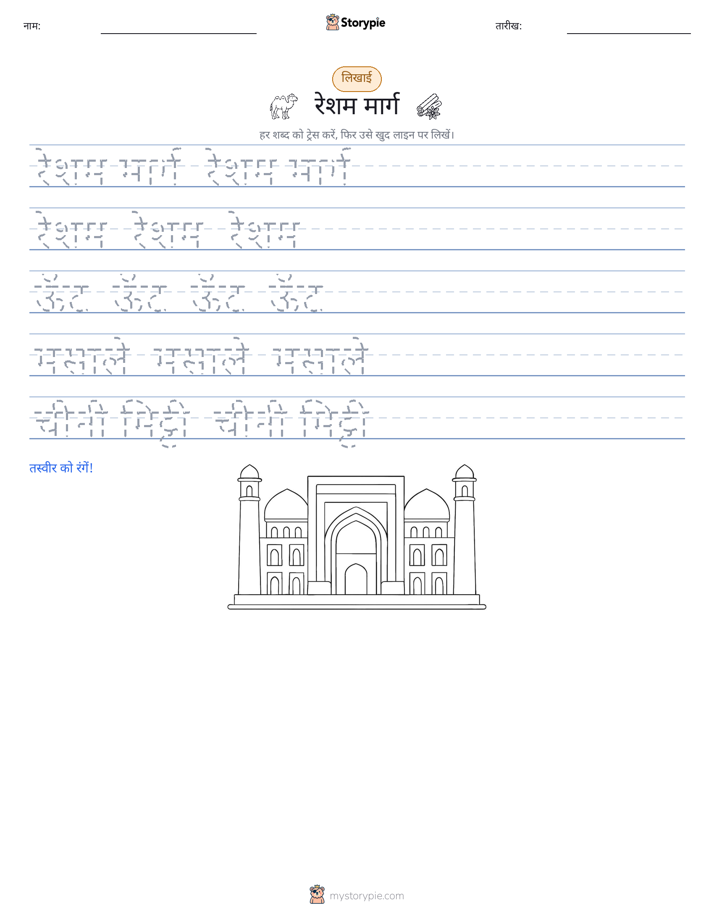 नाम:
Storypie
तारीख:
लिखाई
रेशम मार्ग
हर शब्द को ट्रेस करें, फिर उसे खुद लाइन पर लिखें।
रेशम मार्ग रेशम मार्ग
रेशम रेशम रेशम
ऊँट ऊँट ऊँट ऊँट
मसाले मसाले मसाले
चीनी मिट्टी चीनी मिट्टी
तस्वीर को रंगें!
mystorypie.com